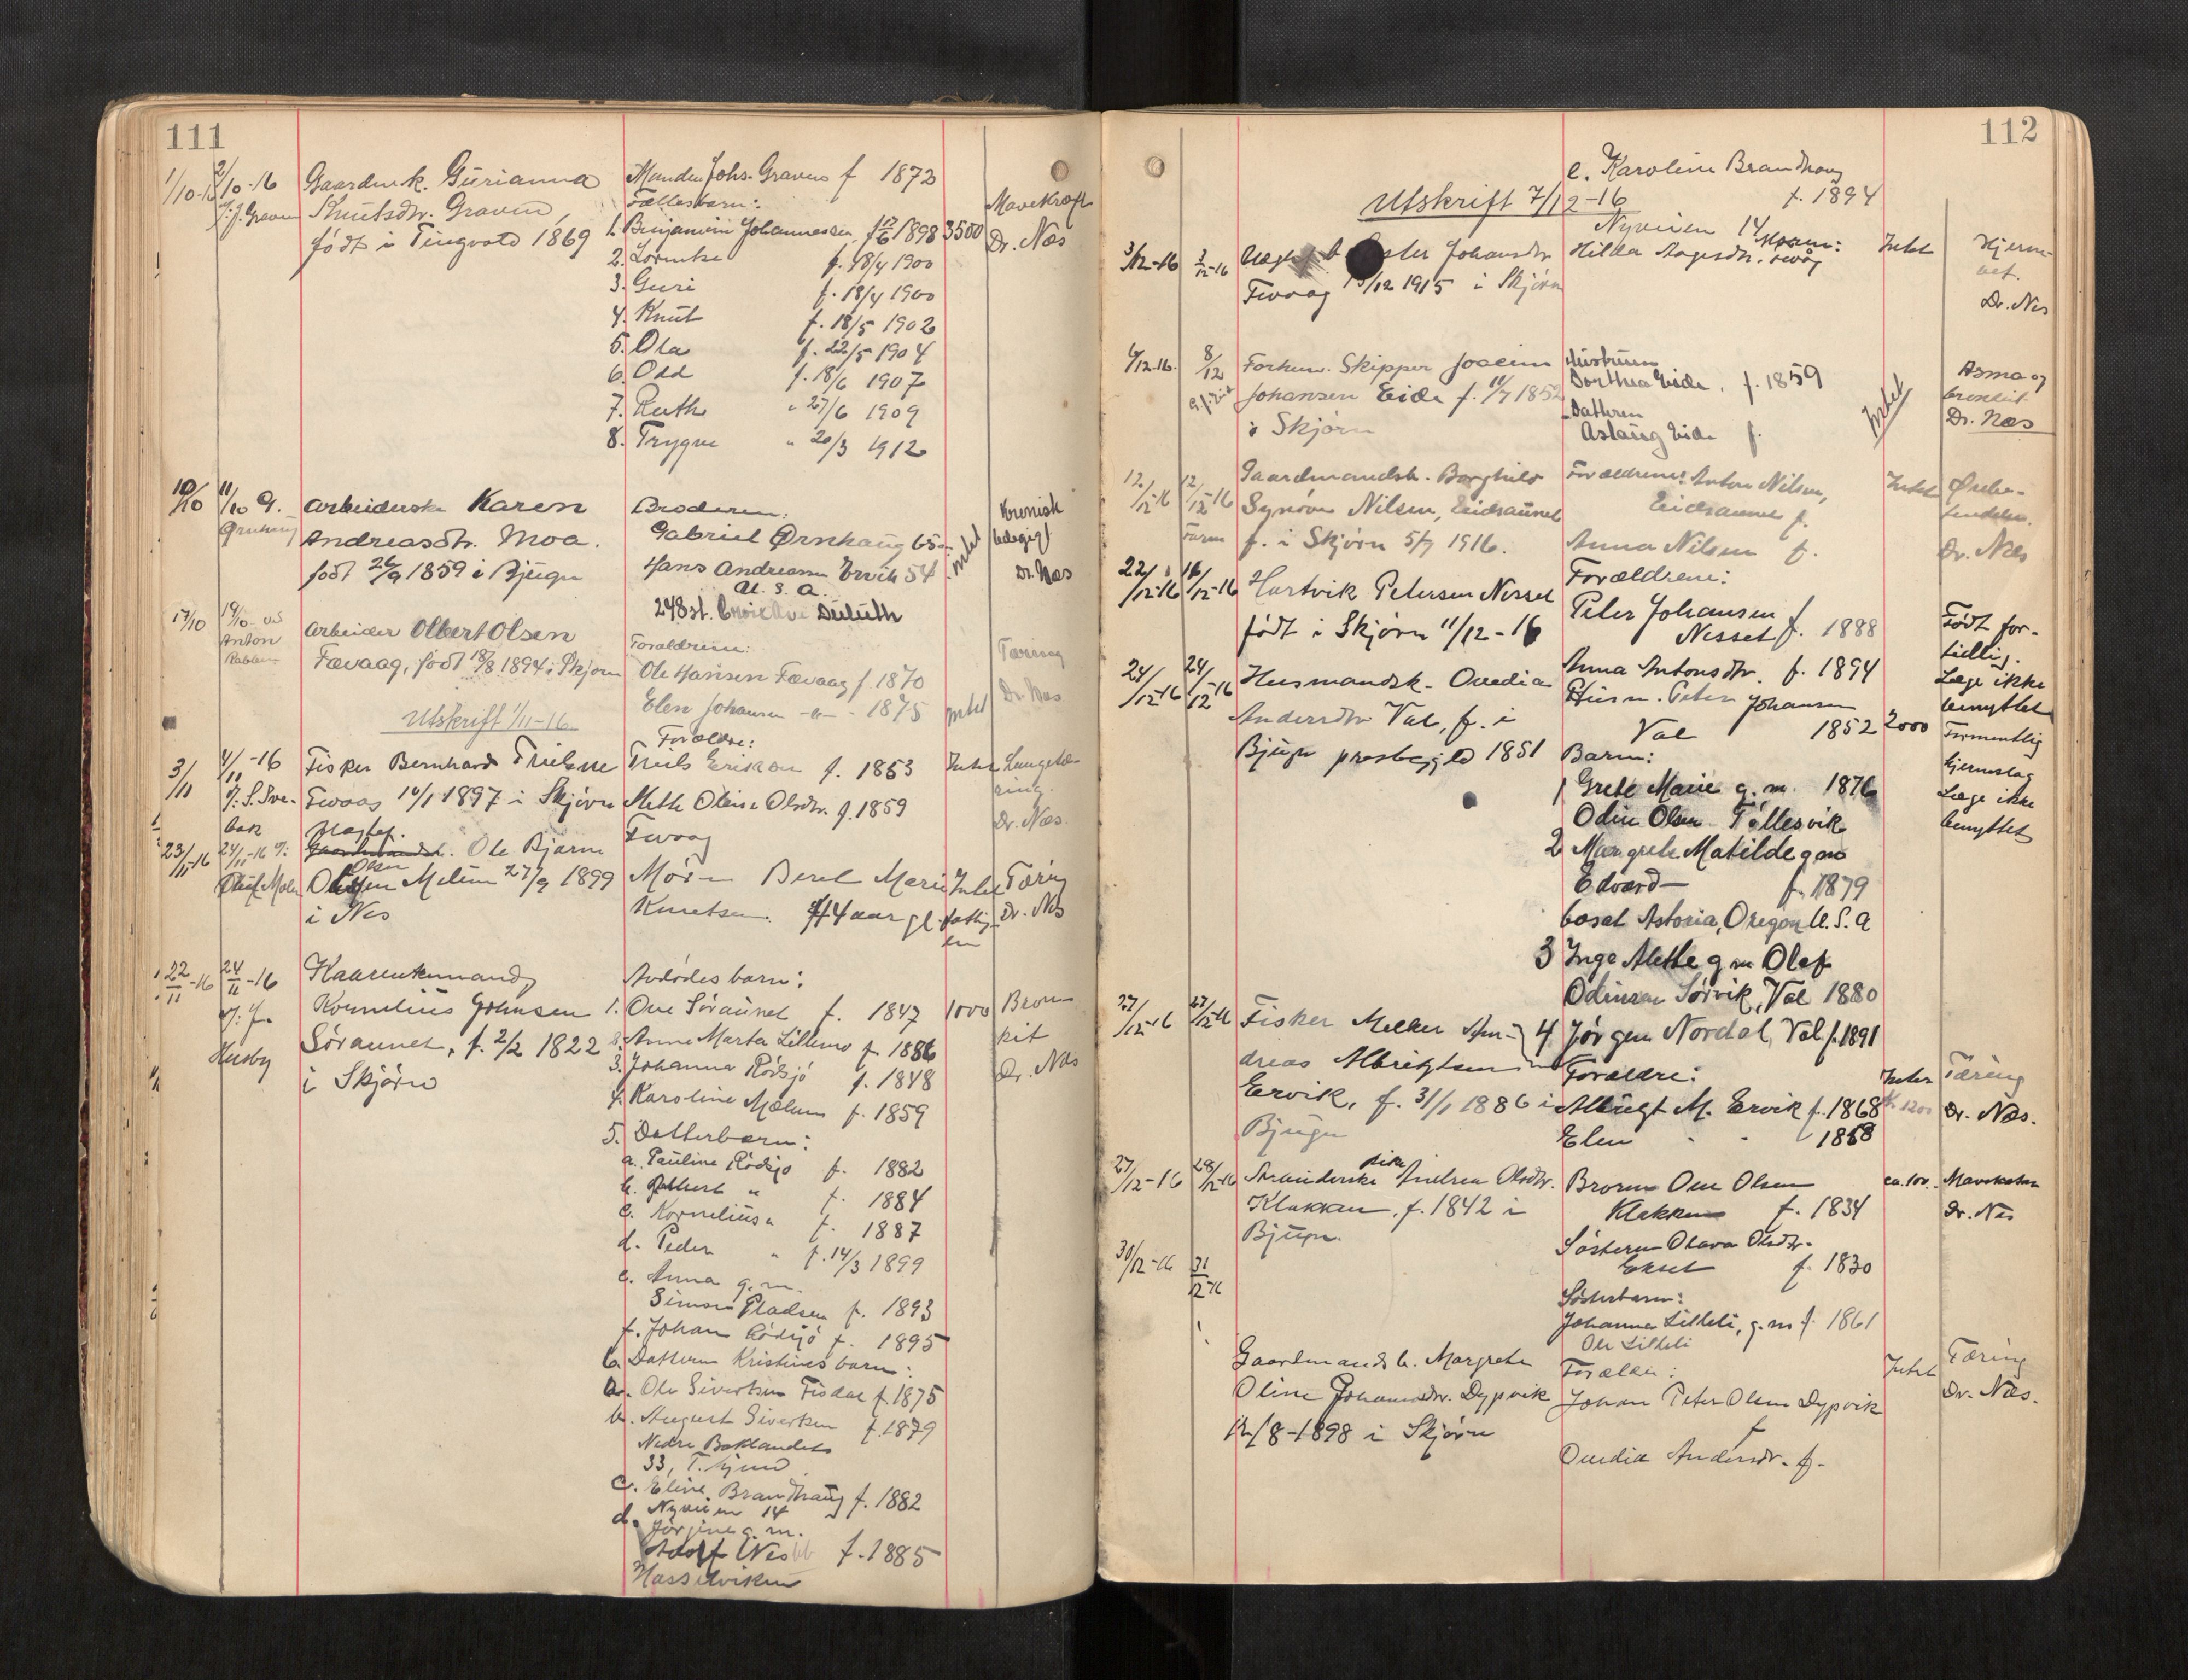 111
1/10-16
2/10-16
J. J. Graven
Gaardmk. Gurianna
Knutsdtr. Graven,
født i Tingvold 1869
Manden Johs. Graven f 1872
Fællesbarn:
1. Benjamin Johannessen f 12/6 1898
2. Lorentse f. 18/4 1900
3. Guri f. 18/4 1900
4. Knut f. 18/5 1902
5. Ola f. 22/5 1904
6. Odd f. 18/6 1907
7. Ruth " 27/6 1909
8. Trygve " 20/3 1912
3500
Mavekræft
Dr. Næs
10/10
11/10 G.
Arbeiderske Karen
Andreasdtr. Moa.
født 26/9 1859 i Bjugn
Broderen:
Gabriel Ørnhaug 65
Hans Andreasen Ervik 54
U. S. A.
248 st. Duluth
Intet
Kronisk
Dr. Næs
17/10
19/10
Anton
Arbeider Olbert Olsen
Fævaag, født 18/8 1894 i Skjørn
Forældrene:
Ole Hansen Fævaag f 1870
Elen Johansen -"- - 1875
Intet
Tæring
Dr Næs
Utskrift 1/11-16
3/11
4/11-16
Fisker Bernhard Trulsen
Tevaag 10/1 1897 i Skjørn
Forældre:
Truls Eriksen f. 1853
Meth Oleise Olsdtr. f. 1859
Tevaag
Intet
Lungetæ-
ring.
Dr. Næs.
23/11-16
24/11-16
Ole Bjarne
Olsen
Melum 27/9 1899
i Nes
Moren Beret Marie
Knutsen. 44 aar gl.
Intet
fattig-
en
Tæring
Dr. Næs
22/11-16
24/11-16
J.
Husby
Kaarenkemand
Kornelius Johnsen
Søraunet, f. 2/2 1822
i Skjørn
Avdødes barn:
1. Ove Søraunet f. 1847
2. Anne Marta Lillemo f. 1886
3. Johanna Rødsjø f. 1848
4. Karoline Mælum f. 1859
5. Datterbarn:
a. Pauline Rødsjø f. 1882
b. Albert " f. 1884
c. Kornelius " f. 1887
d. Peder " f. 14/3 1899
e. Anna g. m.
Simon Pladsen f. 1893
f. Johan Rødsjø f. 1895
6. Datteren Kristines barn:
a. Ole Sivertsen Fisdal f. 1875
b. August Sivertsen f. 1879
Nedre Baklandet
33, T.hjem
c. Eline Brandhaug f. 1882
Nyveien 14
d. Jørgine g. m.
Adolf Nesbb f. 1885
Hasselviken
1000
Bron-
kit
Dr. Næs
112
e. Karoline Brandhaug
f. 1894
Nyveien 14
Utskrift 7/12-16
3/12-16
3/12-16
Ester Johansdtr
Tevaag 13/12 1915 i Skjørn
Moren:
Hilda Aagesdtr.
Intet
Hjerne-
Dr. Næs
6/12-16.
8/12
Forhenv. Skipper Joacim
Johansen Eide f. 11/7 1852
i Skjørn
Hustruen
Dorthea Eide. f. 1859
Datteren
Aslaug Eide f.
Intet
Asma og
bronkit
Dr. Næs
12/12-16
12/12-16
Faren
Gaardmandsb. Borghild
Synøve Nilsen, Eidsaunet
f. i Skjørn 5/9 1916.
Forældrene: Anton Nilsen,
Eidsaunet f.
Anna Nilsen f.
Intet
Dr. Næs
22/12-16
16/12-16
Hartvik Petersen Nesset
født i Skjørn 11/12-16
Forældrene:
Peter Johansen
Nesset f. 1888
Anna Antonsdtr. f. 1894
Født for-
tidlig.
Læge ikke
benyttet
24/12-16
24/12-16
Husmandsk. Ovedia
Andersdtr Val, f. i
Bjugn prestegjeld 1851
Husm. Peter Johansen
Val 1852
Barn:
1 Grete Marie g. m. 1876
Odin Olsen Tøllesvik
2 Margrete Matilde g m
Edvard — f. 1879
bosat Astoria, Oregon U. S. A
3 Inge Alette g m Olef
Odinsen Sørvik, Val 1880
4 Jørgen Nordal, Val f. 1891
2000
Formentlig
hjerneslag
Læge ikke
benyttet
27/12-16
27/12-16
Fisker Melker An-
dreas Albrigtsen
Ervik, f. 31/1 1886 i
Bjugn
Forældre:
Albrigt M. Ervik f. 1868
Elen " " 1858
Intet
Kr. 1200
Tæring
Dr. Næs.
27/12-16
28/12-16
pike Andrea Olsdtr.
Klakken, f. 1842 i
Bjugn.
Broren Ove Olsen
Klakken f. 1834
Søsteren Olava Olsdtr.
f. 1830
Søsterbarn:
Johanna Lilleli, g. m f. 1861
Ole Lilleli
ca. 100.-
Dr. Næs
30/12-16
31/12-16
Gaardmandsb. Margrete
Oline Johansdtr. Dypvik
12/8-1898 i Skjørn
Forældre:
Johan Peter Olsen Dypvik
f
Ovedia Andersdtr. f.
Intet
Tæring
Dr. Næs.